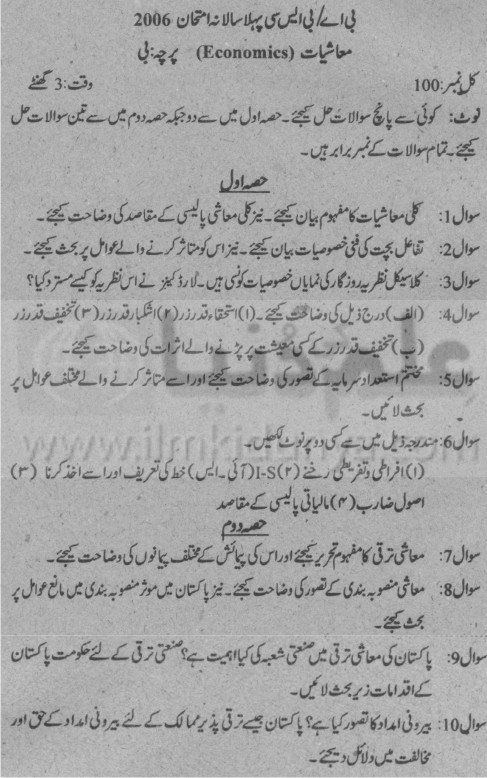 بی اے/بی ایس سی پہلا سالانہ امتحان 2006
معاشیات (Economics) پرچہ: بی
کل نمبر: 100 وقت: 3 گھنٹے
نوٹ: کوئی سے پانچ سوالات حل کیجئے۔ حصہ اول میں سے دو جبکہ حصہ دوم میں سے تین سوالات حل
کیجئے۔ تمام سوالات کے نمبر برابر ہیں۔
حصہ اول
سوال 1: کلی معاشیات کا مفہوم بیان کیجئے۔ نیز کلی معاشی پالیسی کے مقاصد کی وضاحت کیجئے۔
سوال 2: تفاعل بچت کی فنی خصوصیات بیان کیجئے۔ نیز اس کو متاثر کرنے والے عوامل پر بحث کیجئے۔
سوال 3: کلاسیکل نظریہ روزگار کی نمایاں خصوصیات کونسی ہیں۔ لارڈ کینز نے اس نظریہ کو کیسے مسترد کیا؟
سوال 4: (الف) درج ذیل کی وضاحت کیجئے۔ (۱) استحقاء قدر زر (۲) اشکبار قدر زر (۳) تخفیف قدر زر
(ب) تخفیف قدر زر کے کسی معیشت پر پڑنے والے اثرات کی وضاحت کیجئے۔
سوال 5: مختتم استعداد سرمایہ کے تصور کی وضاحت کیجئے اور اسے متاثر کرنے والے مختلف عوامل پر
بحث لائیں۔
سوال 6: مندرجہ ذیل میں سے کسی دو پر نوٹ لکھیں۔
(۱) افراطی و تفریطی رخنے (۲) I-S (آئی۔ایس) خط کی تعریف اور اسے اخذ کرنا (۳)
اصول ضارب (۴) مالیاتی پالیسی کے مقاصد
حصہ دوم
سوال 7: معاشی ترقی کا مفہوم تحریر کیجئے اور اس کی پیمائش کے مختلف پیمانوں کی وضاحت کیجئے۔
سوال 8: معاشی منصوبہ بندی کے تصور کی وضاحت کیجئے۔ نیز پاکستان میں موثر منصوبہ بندی میں مانع عوامل پر
بحث کیجئے۔
سوال 9: پاکستان کی معاشی ترقی میں صنعتی شعبہ کی کیا اہمیت ہے؟ صنعتی ترقی کے لئے حکومت پاکستان
کے اقدامات زیر بحث لائیں۔
سوال 10: بیرونی امداد کا تصور کیا ہے؟ پاکستان جیسے ترقی پذیر ممالک کے لئے بیرونی امداد کے حق اور
مخالفت میں دلائل دیجئے۔
علم کی دنیا